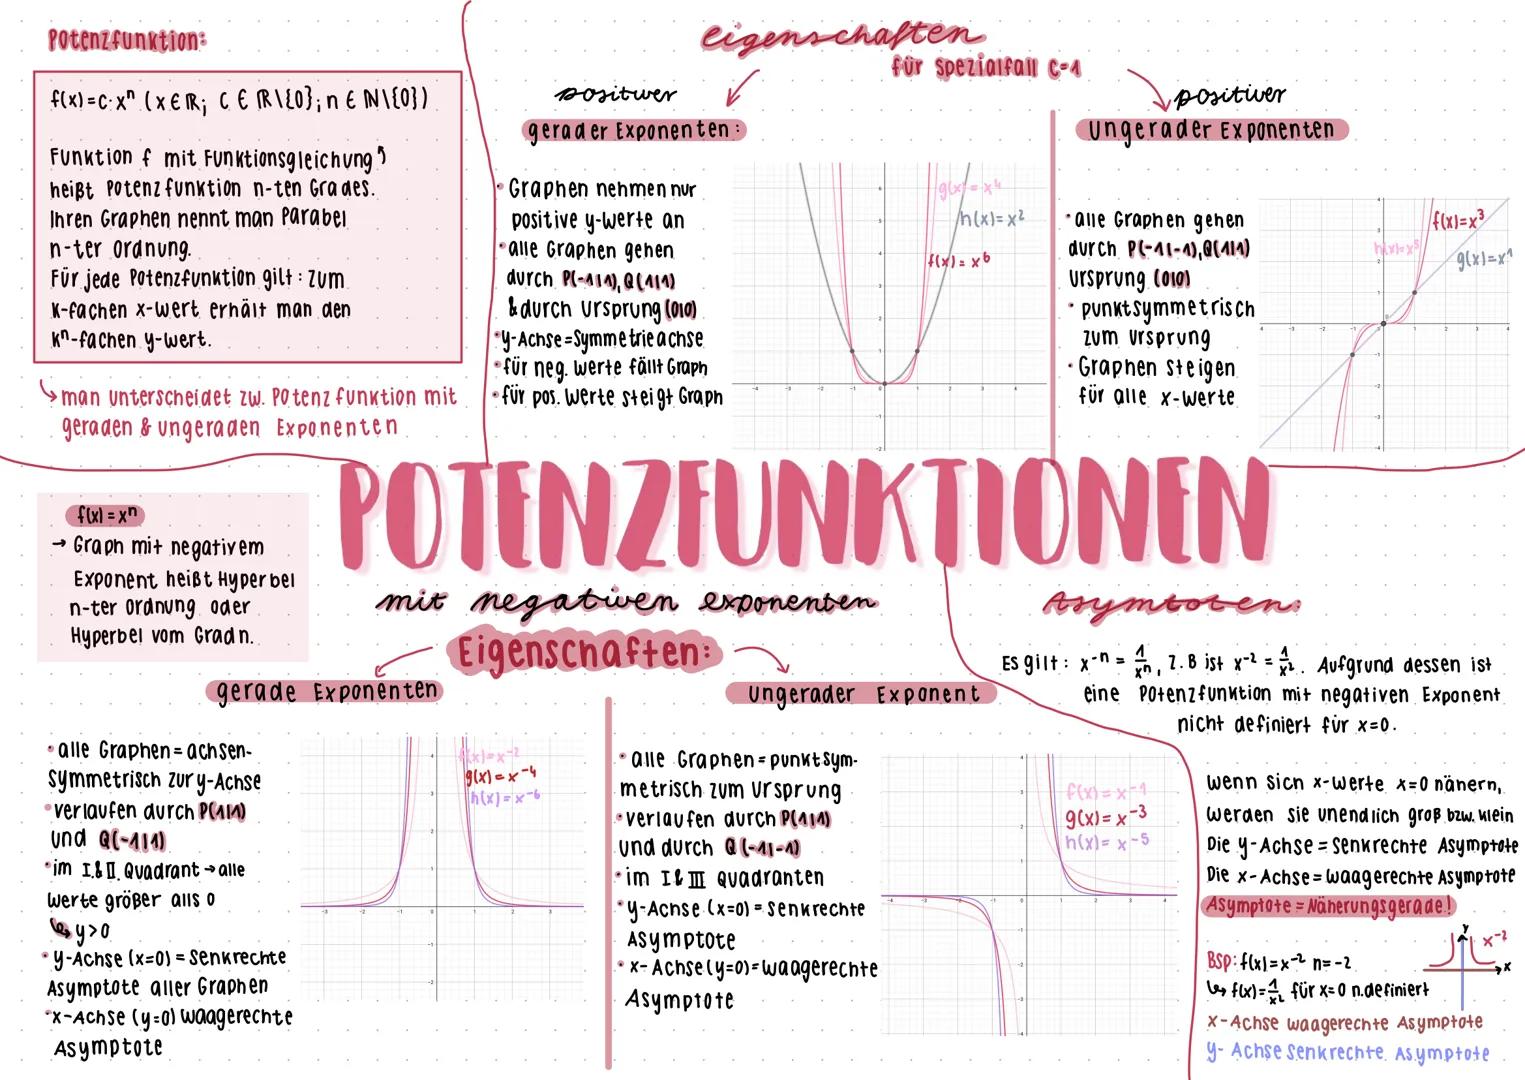 Potenzfunktion:
f(x)=c·xⁿ (x∈ℝ; c∈ℝ\{0}; n∈ℕ\{0})
Funktion f mit Funktionsgleichung
heißt Potenzfunktion n-ten Grades.
Ihren Graphen nennt man Parabel
n-ter Ordnung.
Für jede Potenzfunktion gilt: zum
k-fachen x-wert erhält man den
kⁿ-fachen y-wert.
man unterscheidet zw. Potenzfunktion mit
geraden & ungeraden Exponenten
eigenschaften
für spezialfall c=1
positiver
gerader Exponenten:
• Graphen nehmen nur
positive y-werte an
• alle Graphen gehen
durch P(-1|1), Q(1|1)
& durch Ursprung (0|0)
• y-Achse=Symmetrieachse
• für neg. Werte fällt Graph
• für pos. Werte steigt Graph
g(x)=x⁴
h(x)=x²
f(x)=x⁶
positiver
Ungerader Exponenten
• alle Graphen gehen
durch P(-1|-1), Q(1|1)
Ursprung (0|0)
• punktsymmetrisch
zum Ursprung
• Graphen steigen
für alle x-werte
f(x)=x³
h(x)=x⁵
g(x)=x¹
POTENZFUNKTIONEN
f(x)=xⁿ
→ Graph mit negativem
Exponent heißt Hyperbel
n-ter Ordnung oder
Hyperbel vom Grad n.
mit negativen exponenten
Eigenschaften:
gerade Exponenten
• alle Graphen = achsen-
symmetrisch zur y-Achse
• verlaufen durch P(1|1)
und Q(-1|1)
• im I.&II. Quadrant → alle
Werte größer alls 0
↳ y>0
• y-Achse (x=0) = Senkrechte
Asymptote aller Graphen
• x-Achse (y=0) waagerechte
Asymptote
f(x)=x⁻²
g(x)=x⁻⁴
h(x)=x⁻⁶
Ungerader Exponent
• alle Graphen = punktsym-
metrisch zum Ursprung
• verlaufen durch P(1|1)
und durch Q(-1|-1)
• im I & III Quadranten
• y-Achse (x=0) = Senkrechte
Asymptote
• x-Achse (y=0)=waagerechte
Asymptote
f(x)=x⁻¹
g(x)=x⁻³
h(x)=x⁻⁵
Asymtoten:
Es gilt: x⁻ⁿ = 1/xⁿ, z.B ist x⁻² = 1/x². Aufgrund dessen ist
eine Potenzfunktion mit negativen Exponent
nicht definiert für x=0.
Wenn sich x-werte x=0 nänern,
werden sie unendlich groß bzw. klein
Die y-Achse = senkrechte Asymptote
Die x-Achse = waagerechte Asymptote
Asymptote = Näherungsgerade!
Bsp: f(x)=x⁻² n=-2
↳ f(x)=1/x² für x=0 n.definiert
y
x⁻²
x
x-Achse waagerechte Asymptote
y-Achse Senkrechte Asymptote